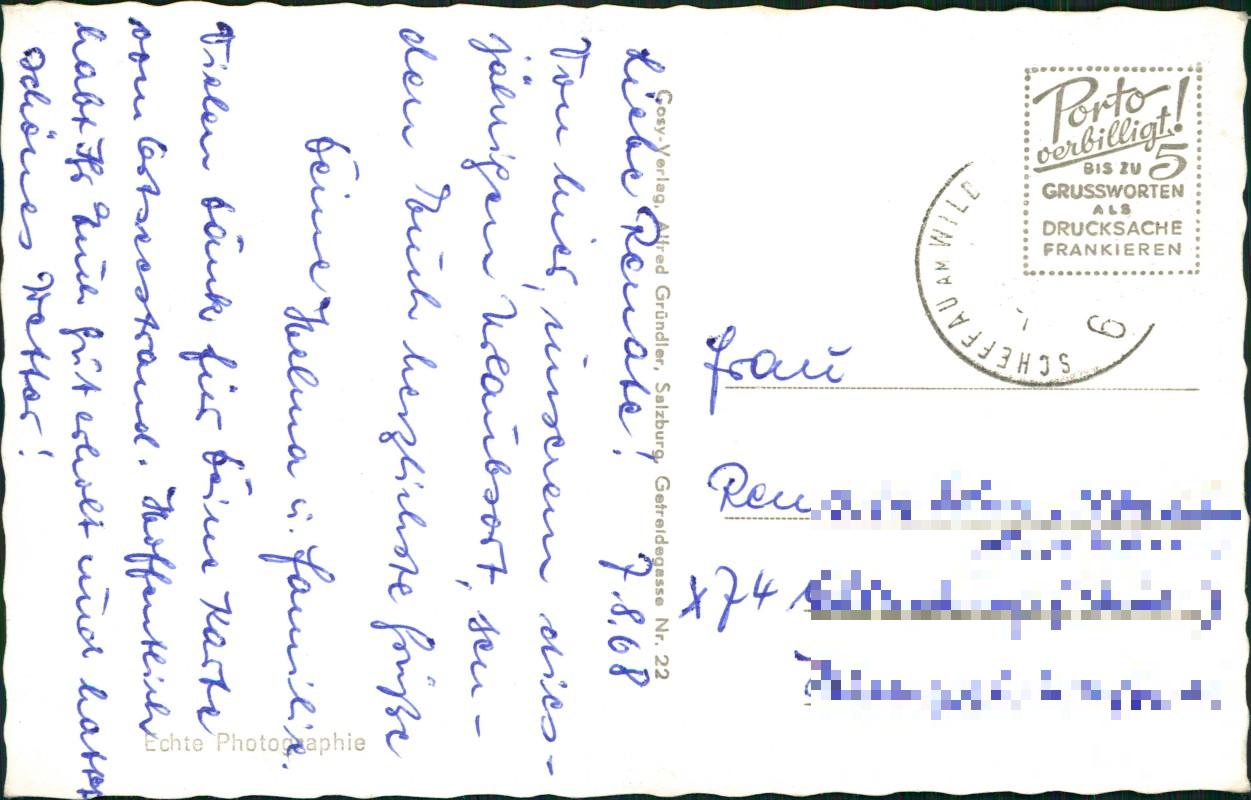 Liebe Renate! 7.8.68
Von hier, unserem dies-
jährigen Urlaubsort, sen-
den Euch herzlichste Grüße
Deine Helma u. Familie.
Vielen Dank für Deine Karte
vom Ostseestrand. Hoffentlich
habt Ihr Euch gut erholt und hattet
schönes Wetter!
Gosy-Verlag, Alfred Gründler, Salzburg, Getreidegasse Nr. 22
Echte Photographie
Porto
verbilligt!
BIS ZU 5
GRUSSWORTEN
ALS
DRUCKSACHE
FRANKIEREN
SCHEFFAU AM WILD
Frau
Ren
x74